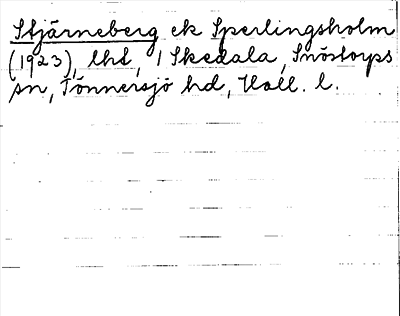 Stjärneberg ek Sperlingsholm
(1923), lht, 1 Skedala, Snöstorps
sn, Tönnersjö hd, Hall. l.